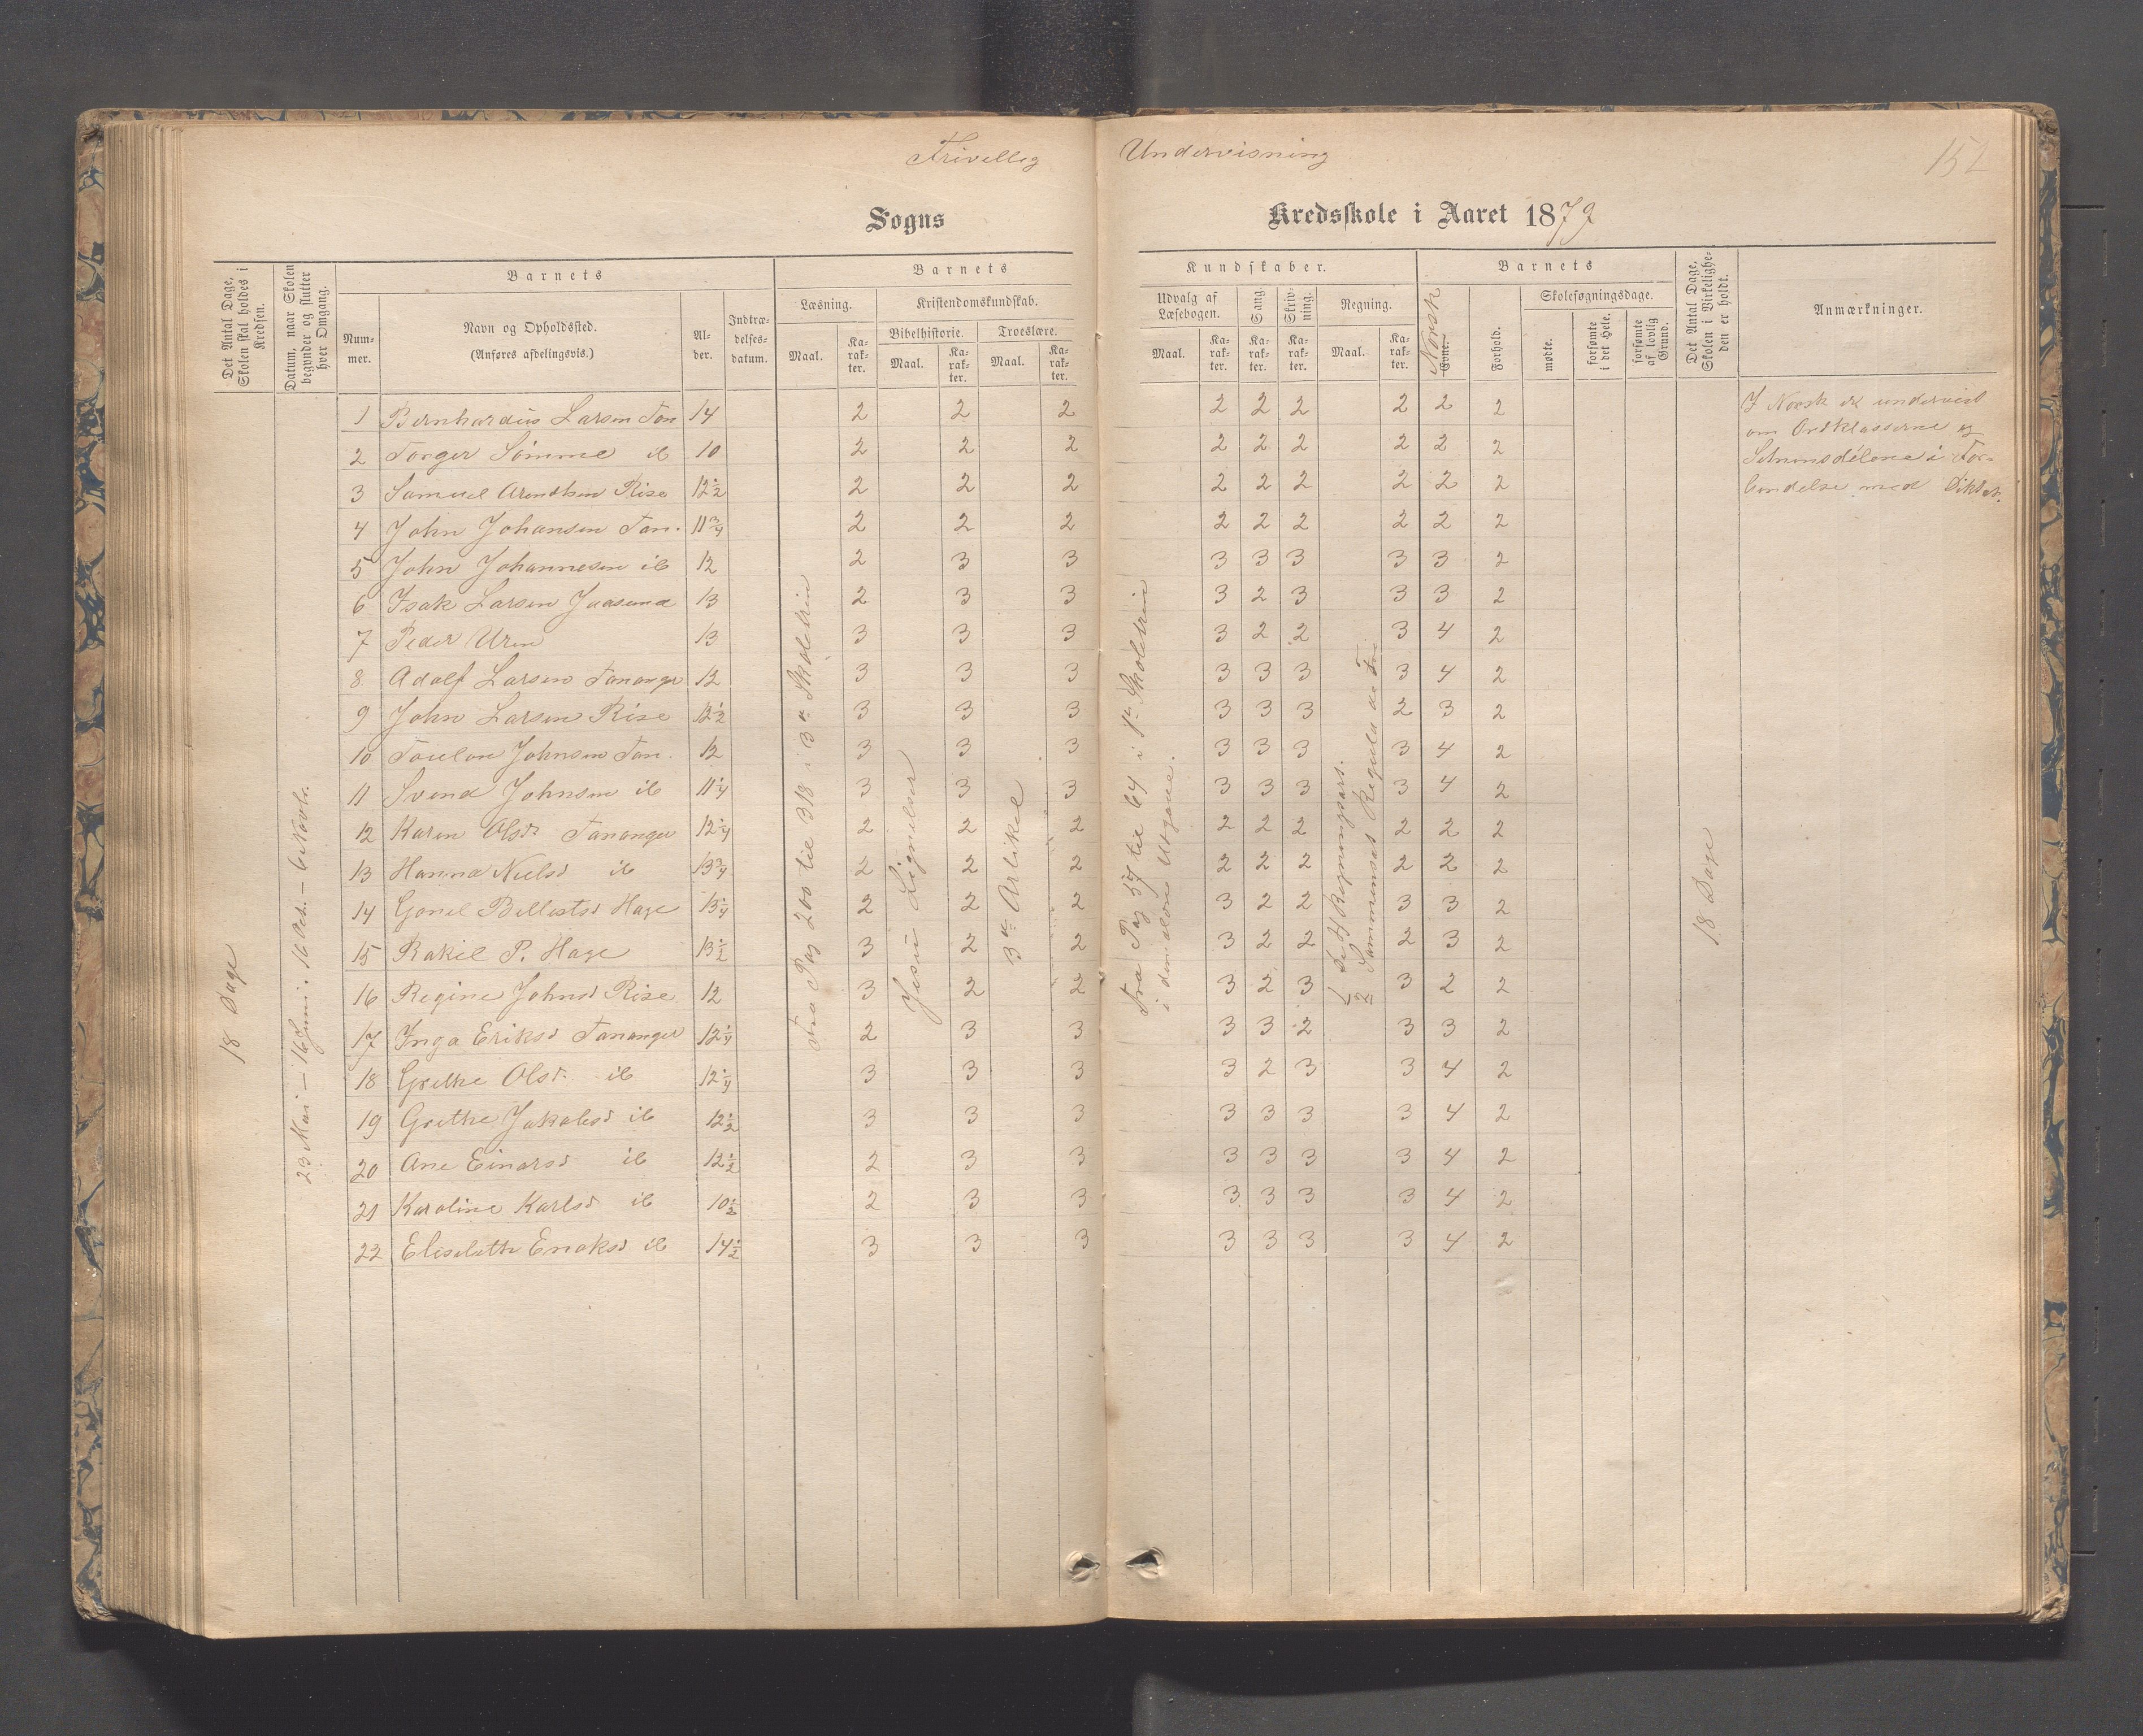 Frivillig Undervisning
152
Sogns Kredsskole i Aaret 1879
Det Antal Dage, Skolen skal holdes i Kredsen.
Datum, naar Skolen begynder og slutter hver Omgang.
Barnets
Num-mer.
Navn og Opholdssted.
(Anføres afdelingsvis.)
Al-der.
Indtræ-delses-datum.
Barnets
Læsning.
Maal.
Ka-rak-ter.
Kristendomskundskab.
Bibelhistorie.
Maal.
Ka-rak-ter.
Troeslære.
Maal.
Ka-rak-ter.
Kundskaber.
Udvalg af Læsebogen.
Maal.
Ka-rak-ter.
Sang.
Ka-rak-ter.
Skriv-ning.
Ka-rak-ter.
Regning.
Maal.
Ka-rak-ter.
Barnets
Evne.
Norsk
Forhold.
Skolesøgningsdage.
mødte.
forsømte i det Hele.
forsømte af lovlig Grund.
Det Antal Dage, Skolen i Virkelighe-den er holdt.
Anmærkninger.
1 Bernhardus Larsen Tan 14 2 2 2 2 2 2 2 2 2
2 Torger Sømme ib 10 2 2 2 2 2 2 2 2 2
3 Samuel Arentsen Rise 12½ 2 2 2 2 2 2 2 2 2
4 John Johansen Tan. 11¾ 2 2 2 2 2 2 2 2 2
5 John Johannesen ib 12 2 3 3 3 3 3 3 3 2
6 Isak Larsen Jaasund 13 2 3 3 3 2 3 3 3 2
7 Peder Uren 13 3 3 3 3 2 2 3 4 2
8 Adolf Larsen Tananger 12 3 3 3 3 3 3 3 4 2
9 John Larsen Rise 12½ 3 3 3 3 3 3 2 3 2
10 Johnsen Tan. 12 3 3 3 3 3 3 3 4 2
11 Svend Johnsen ib 11¼ 3 3 3 3 3 3 3 4 2
12 Karen Olsd. Tananger 12¼ 2 2 2 2 2 2 2 2 2
13 Hanna Nielsd ib 13¾ 2 2 2 2 2 2 2 2 2
14 Gonil Hage 13¼ 2 2 2 3 2 2 3 3 2
15 Rakil P. Hage 13½ 3 2 2 3 2 2 2 3 2
16 Regine Johnsd Rise 12 3 2 2 3 2 3 3 2 2
17 Inga Eriksd Tananger 12¼ 2 3 3 3 3 2 3 3 2
18 Grethe Olsd. ib 12¼ 3 3 3 3 2 3 3 4 2
19 Grethe Jakobsd ib 12½ 3 3 3 3 3 3 3 4 2
20 Ane Einarsd ib 12½ 2 3 3 3 3 3 3 4 2
21 Karoline Karlsd ib 10½ 2 3 3 3 3 3 3 4 2
22 Elisabeth Enoksd ib 14½ 3 3 3 3 3 3 3 4 2
18 Dage
23 Mai – 16 Juni. 16 Oct. – 6 Novbr.
Fra Pag 200 til 318 i 3die Skoletrin
Jesu Lignelser
3die Artikel
Fra Pag 57 til 64 i 1ste Skoletrin
i den ældre Utgave.
1 Regningsart.
2 Sammensat Reguladetri
18 Dage
I Norsk er undervist
om Ordklasserne og
Setningsdelene i For-
bindelse med Diktat.